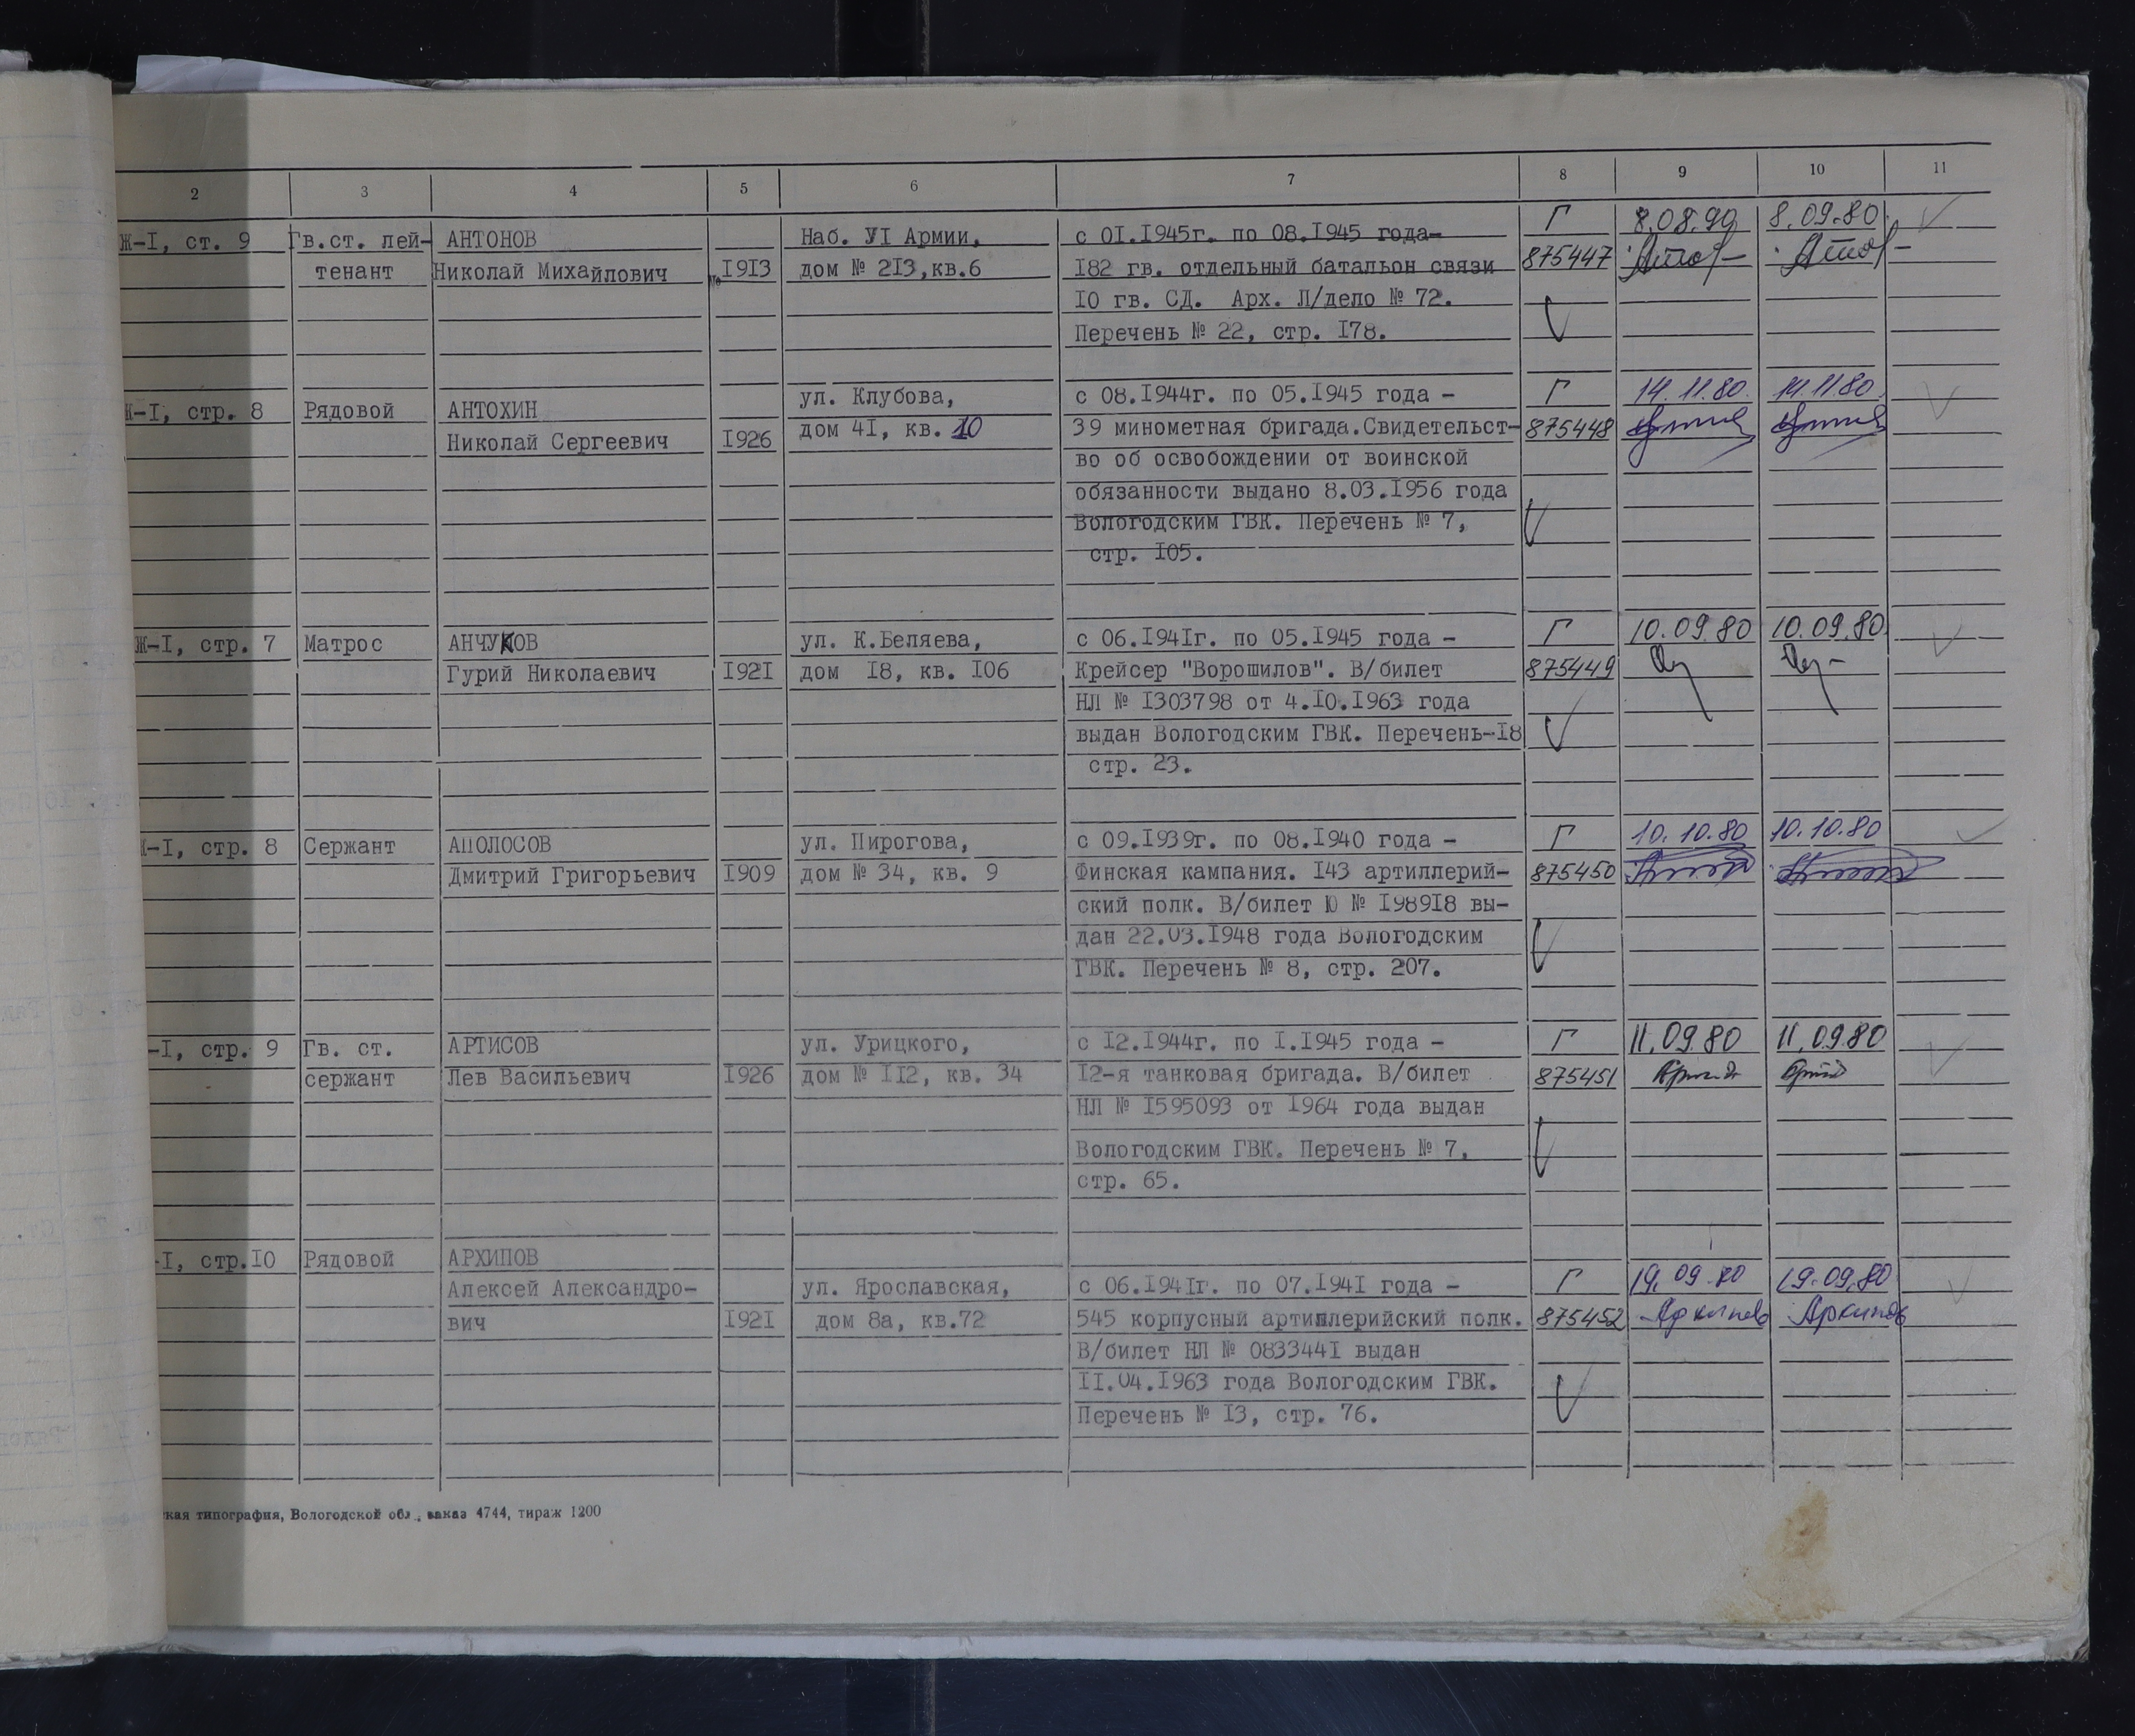 2 3 4 5 6 7 8 9 10 11
Ж-I, ст. 9 Гв.ст. лей- АНТОНОВ Наб. УI Армии, с 0I.I945г. по 08.I945 года- Г 8.09.80
тенант Николай Михайлович I9I3 дом № 2I3,кв.6 I82 гв. отдельный батальон связи 875447
I0 гв. СД. Арх. Л/дело № 72.
Перечень № 22, стр. I78.
Ж-I, стр. 8 Рядовой АНТОХИН ул. Клубова, с 08.I944г. по 05.I945 года - Г 14.11.80. 14.11.80.
Николай Сергеевич I926 дом 4I, кв. 10 39 минометная бригада.Свидетельст- 875448
во об освобождении от воинской
обязанности выдано 8.03.I956 года
Вологодским ГВК. Перечень № 7,
стр. I05.
Ж-I, стр. 7 Матрос АНЧУКОВ ул. К.Беляева, с 06.I94Iг. по 05.I945 года - Г 10.09.80 10.09.80
Гурий Николаевич I92I дом I8, кв. I06 Крейсер "Ворошилов". В/билет 875449
НЛ № I303798 от 4.I0.I963 года
выдан Вологодским ГВК. Перечень-I8
стр. 23.
Ж-I, стр. 8 Сержант АПОЛОСОВ ул. Пирогова, с 09.I939г. по 08.I940 года - Г 10.10.80 10.10.80
Дмитрий Григорьевич I909 дом № 34, кв. 9 Финская кампания. I43 артиллерий- 875450
ский полк. В/билет Ю № I989I8 вы-
дан 22.03.I948 года Вологодским
ГВК. Перечень № 8, стр. 207.
-I, стр. 9 Гв. ст. АРТИСОВ ул. Урицкого, с I2.I944г. по I.I945 года - Г 11.09.80 11.09.80
сержант Лев Васильевич I926 дом № II2, кв. 34 I2-я танковая бригада. В/билет 875451
НЛ № I595093 от I964 года выдан
Вологодским ГВК. Перечень № 7,
стр. 65.
-I, стр.I0 Рядовой АРХИПОВ
Алексей Александро- ул. Ярославская, с 06.I94Iг. по 07.I94I года - Г 19.09.80 19.09.80
вич I92I дом 8а, кв.72 545 корпусный артиллерийский полк. 875452 Архипов Архипов
В/билет НЛ № 083344I выдан
II.04.I963 года Вологодским ГВК.
Перечень № I3, стр. 76.
ская типография, Вологодской обл., заказ 4744, тираж 1200